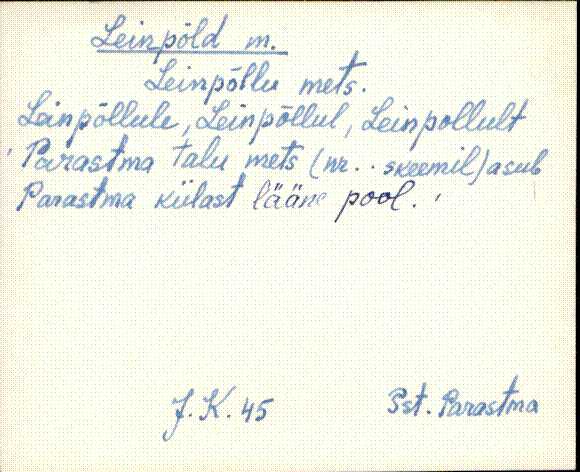 Leinpõld m.
Leinpõllu mets.
Leinpõllule, Leinpõllul, Leinpõllult
'Parastma talu mets (nr. . skeemil) asub
Parastma külast lääne pool.'
J. K. 45 Pst. Parastma